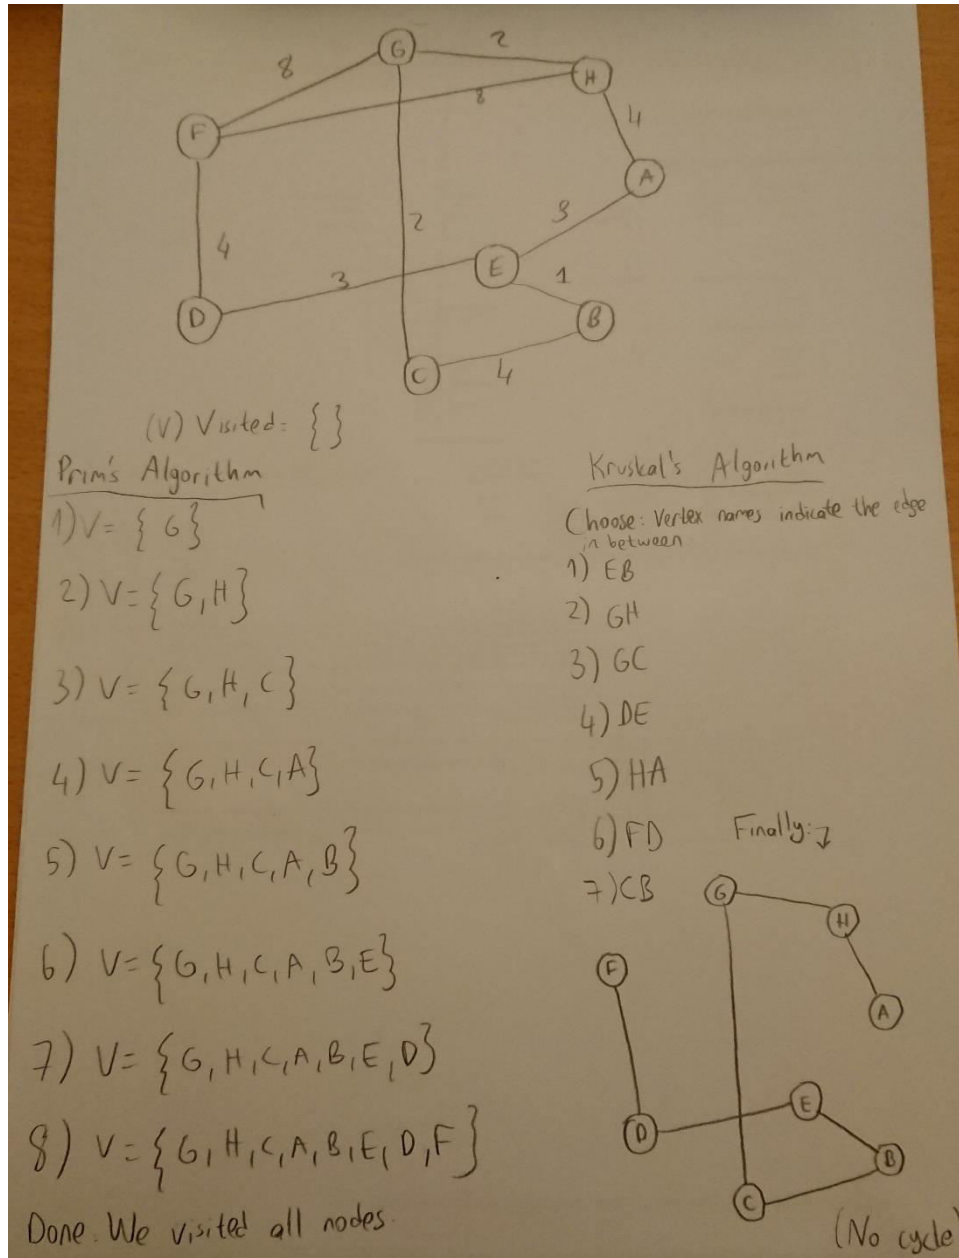 G
2
8
H
8
F
4
A
2
3
4
E
3
1
D
B
C
4
(V) Visited = { }
Prim's Algorithm
1) V = { G }
2) V = { G, H }
3) V = { G, H, C }
4) V = { G, H, C, A }
5) V = { G, H, C, A, B }
6) V = { G, H, C, A, B, E }
7) V = { G, H, C, A, B, E, D }
8) V = { G, H, C, A, B, E, D, F }
Done. We visited all nodes.
Kruskal's Algorithm
Choose: Vertex names indicate the edge
in between
1) EB
2) GH
3) GC
4) DE
5) HA
6) FD
7) CB
Finally:
G
H
F
A
E
D
B
C
(No cycle)